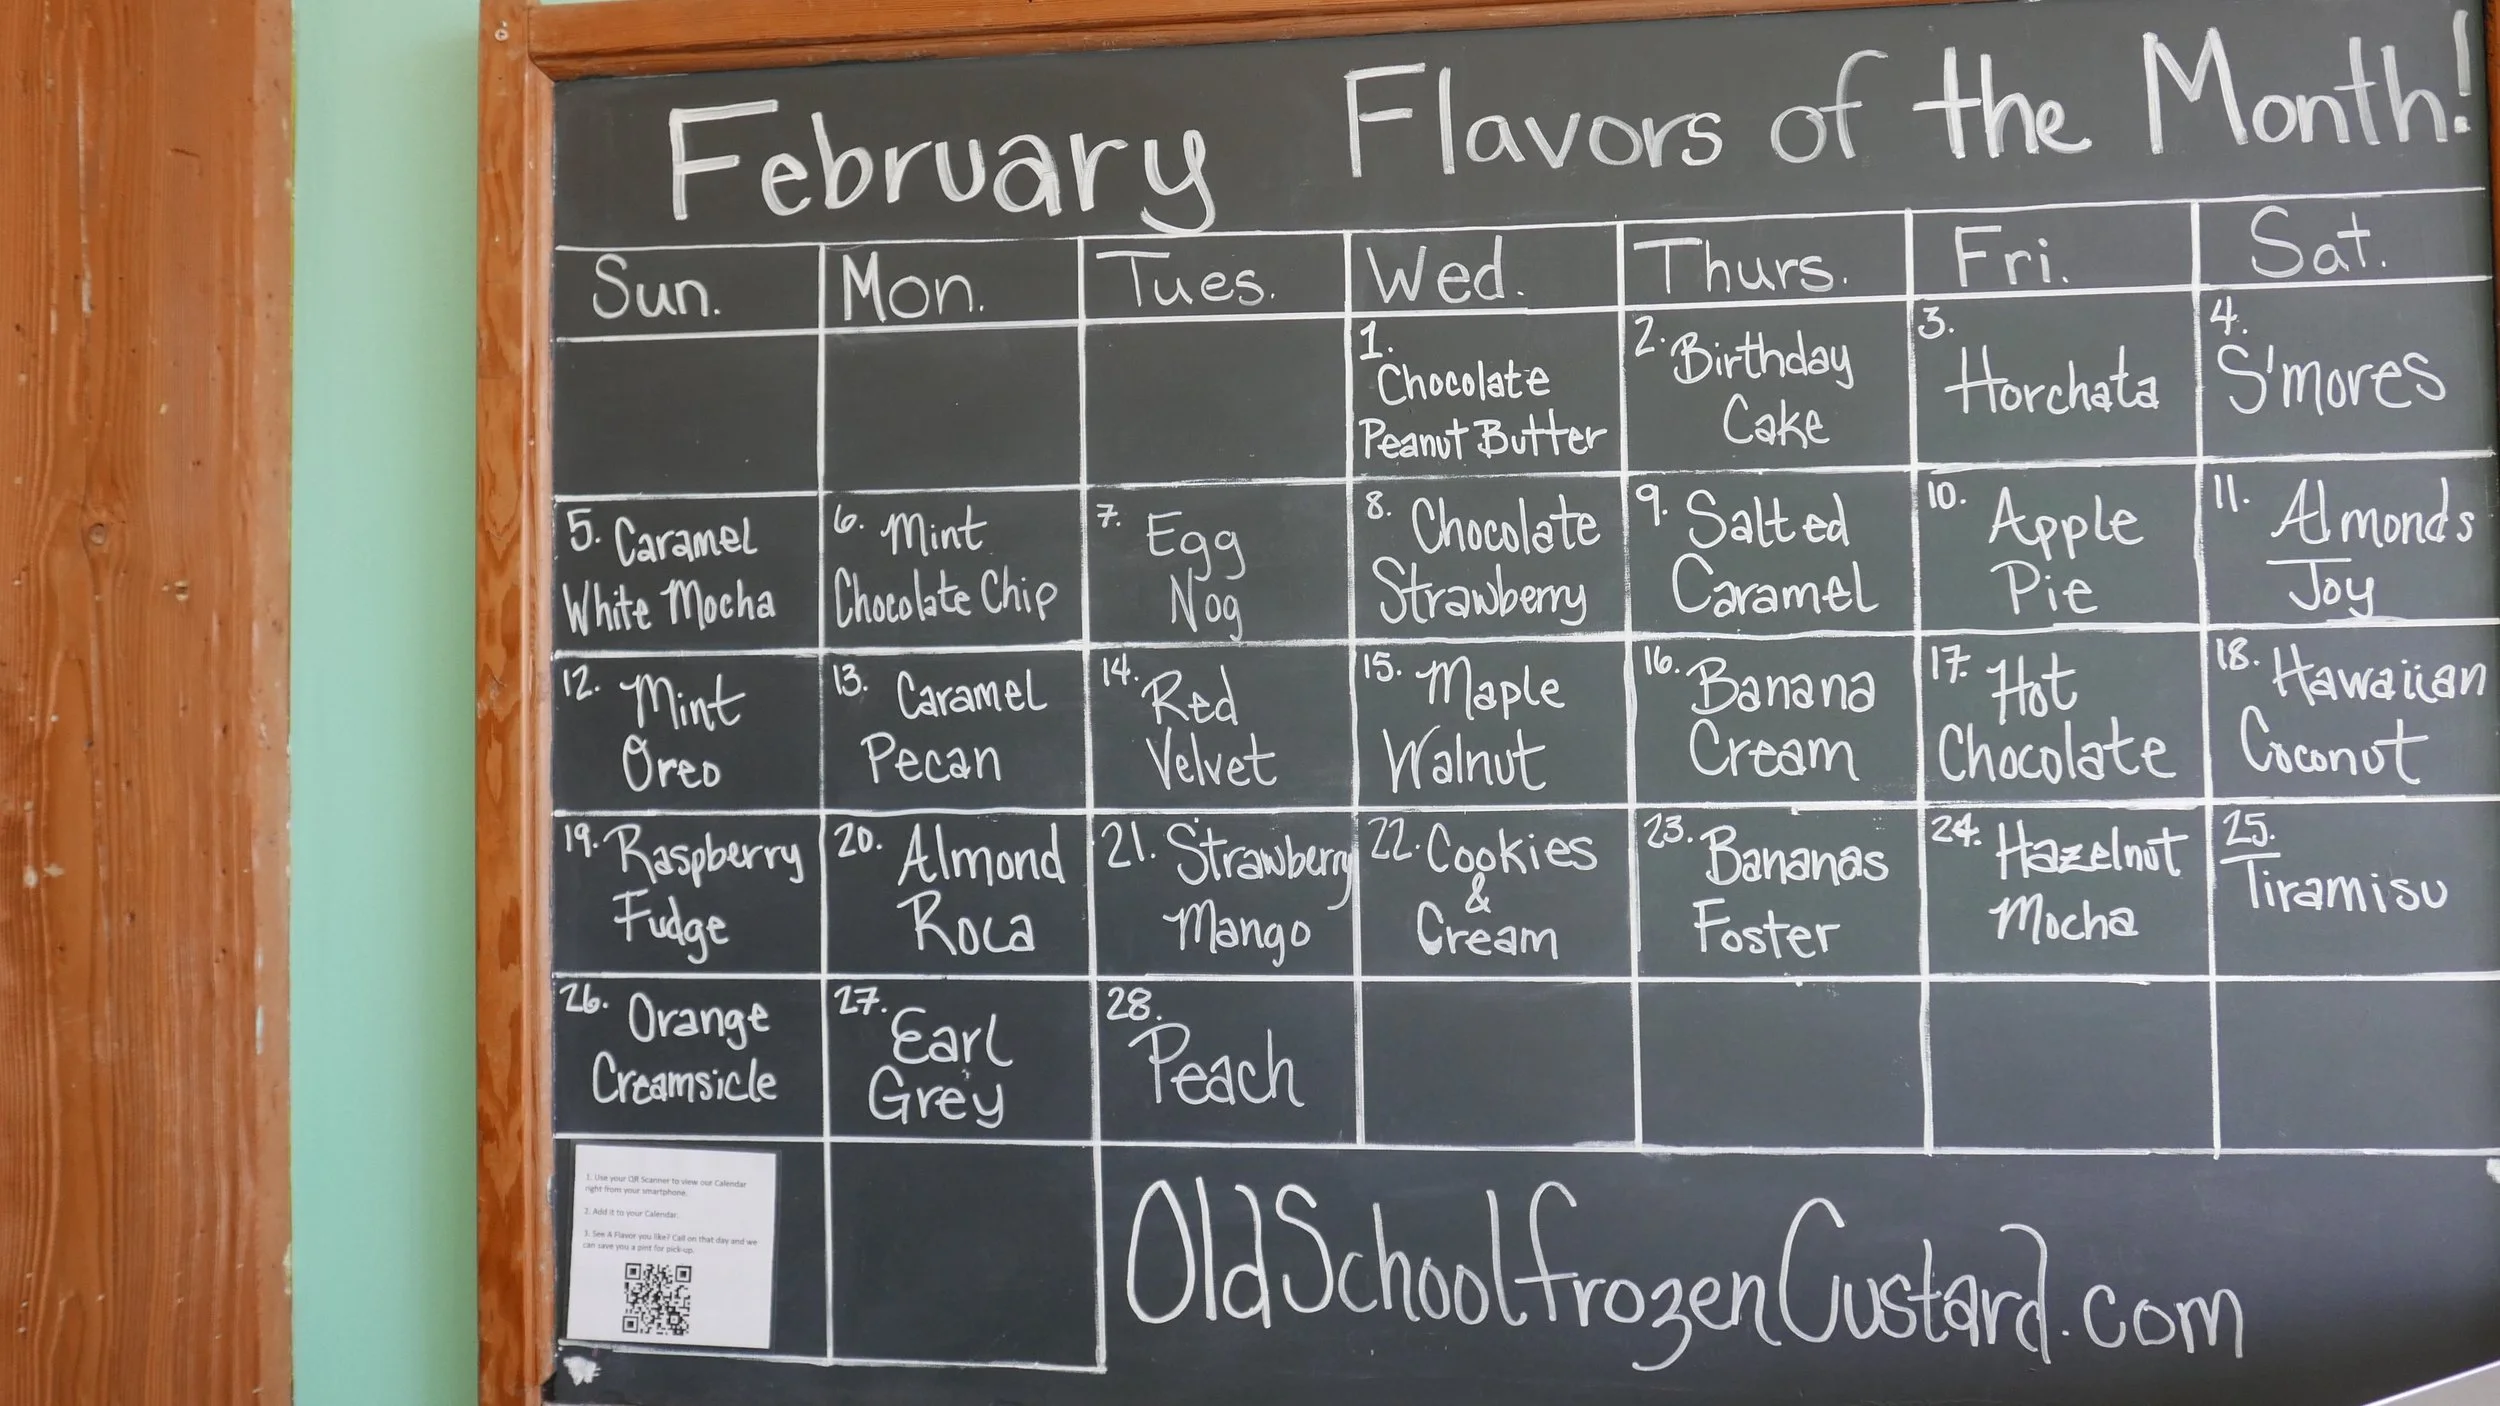 February Flavors of the Month!
Sun. Mon. Tues. Wed. Thurs. Fri. Sat.
1.
Chocolate
Peanut Butter
2. Birthday
Cake
3.
Horchata
4.
S'mores
5. Caramel
White Mocha
6. Mint
Chocolate Chip
7. Egg
Nog
8. Chocolate
Strawberry
9. Salted
Caramel
10. Apple
Pie
11. Almonds
Joy
12. Mint
Oreo
13. Caramel
Pecan
14. Red
Velvet
15. Maple
Walnut
16. Banana
Cream
17. Hot
Chocolate
18. Hawaiian
Coconut
19. Raspberry
Fudge
20. Almond
Roca
21. Strawberry
Mango
22. Cookies
&
Cream
23. Bananas
Foster
24. Hazelnut
Mocha
25.
Tiramisu
26. Orange
Creamsicle
27. Earl
Grey
28.
Peach
1. Use your QR Scanner to view our Calendar
right from your smartphone.
2. Add it to your Calendar.
3. See A Flavor you like? Call on that day and we
can save you a pint for pick-up.
OldSchoolfrozenCustard.com